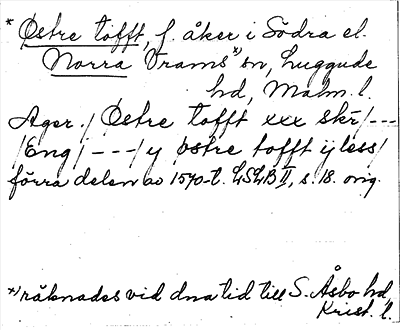 * Østre tofft, f. åker i Södra el.
Norra Vrams *) sn, Luggude
hd, Malm. l.
Ager./ Østre tofft xxx skr/---
/Eng/---/y østre tofft ij less/
förra delen av 1570-t. LSLB II, s. 18. orig.
*) räknades vid dna tid till S. Åsbo hd,
Krist. l.